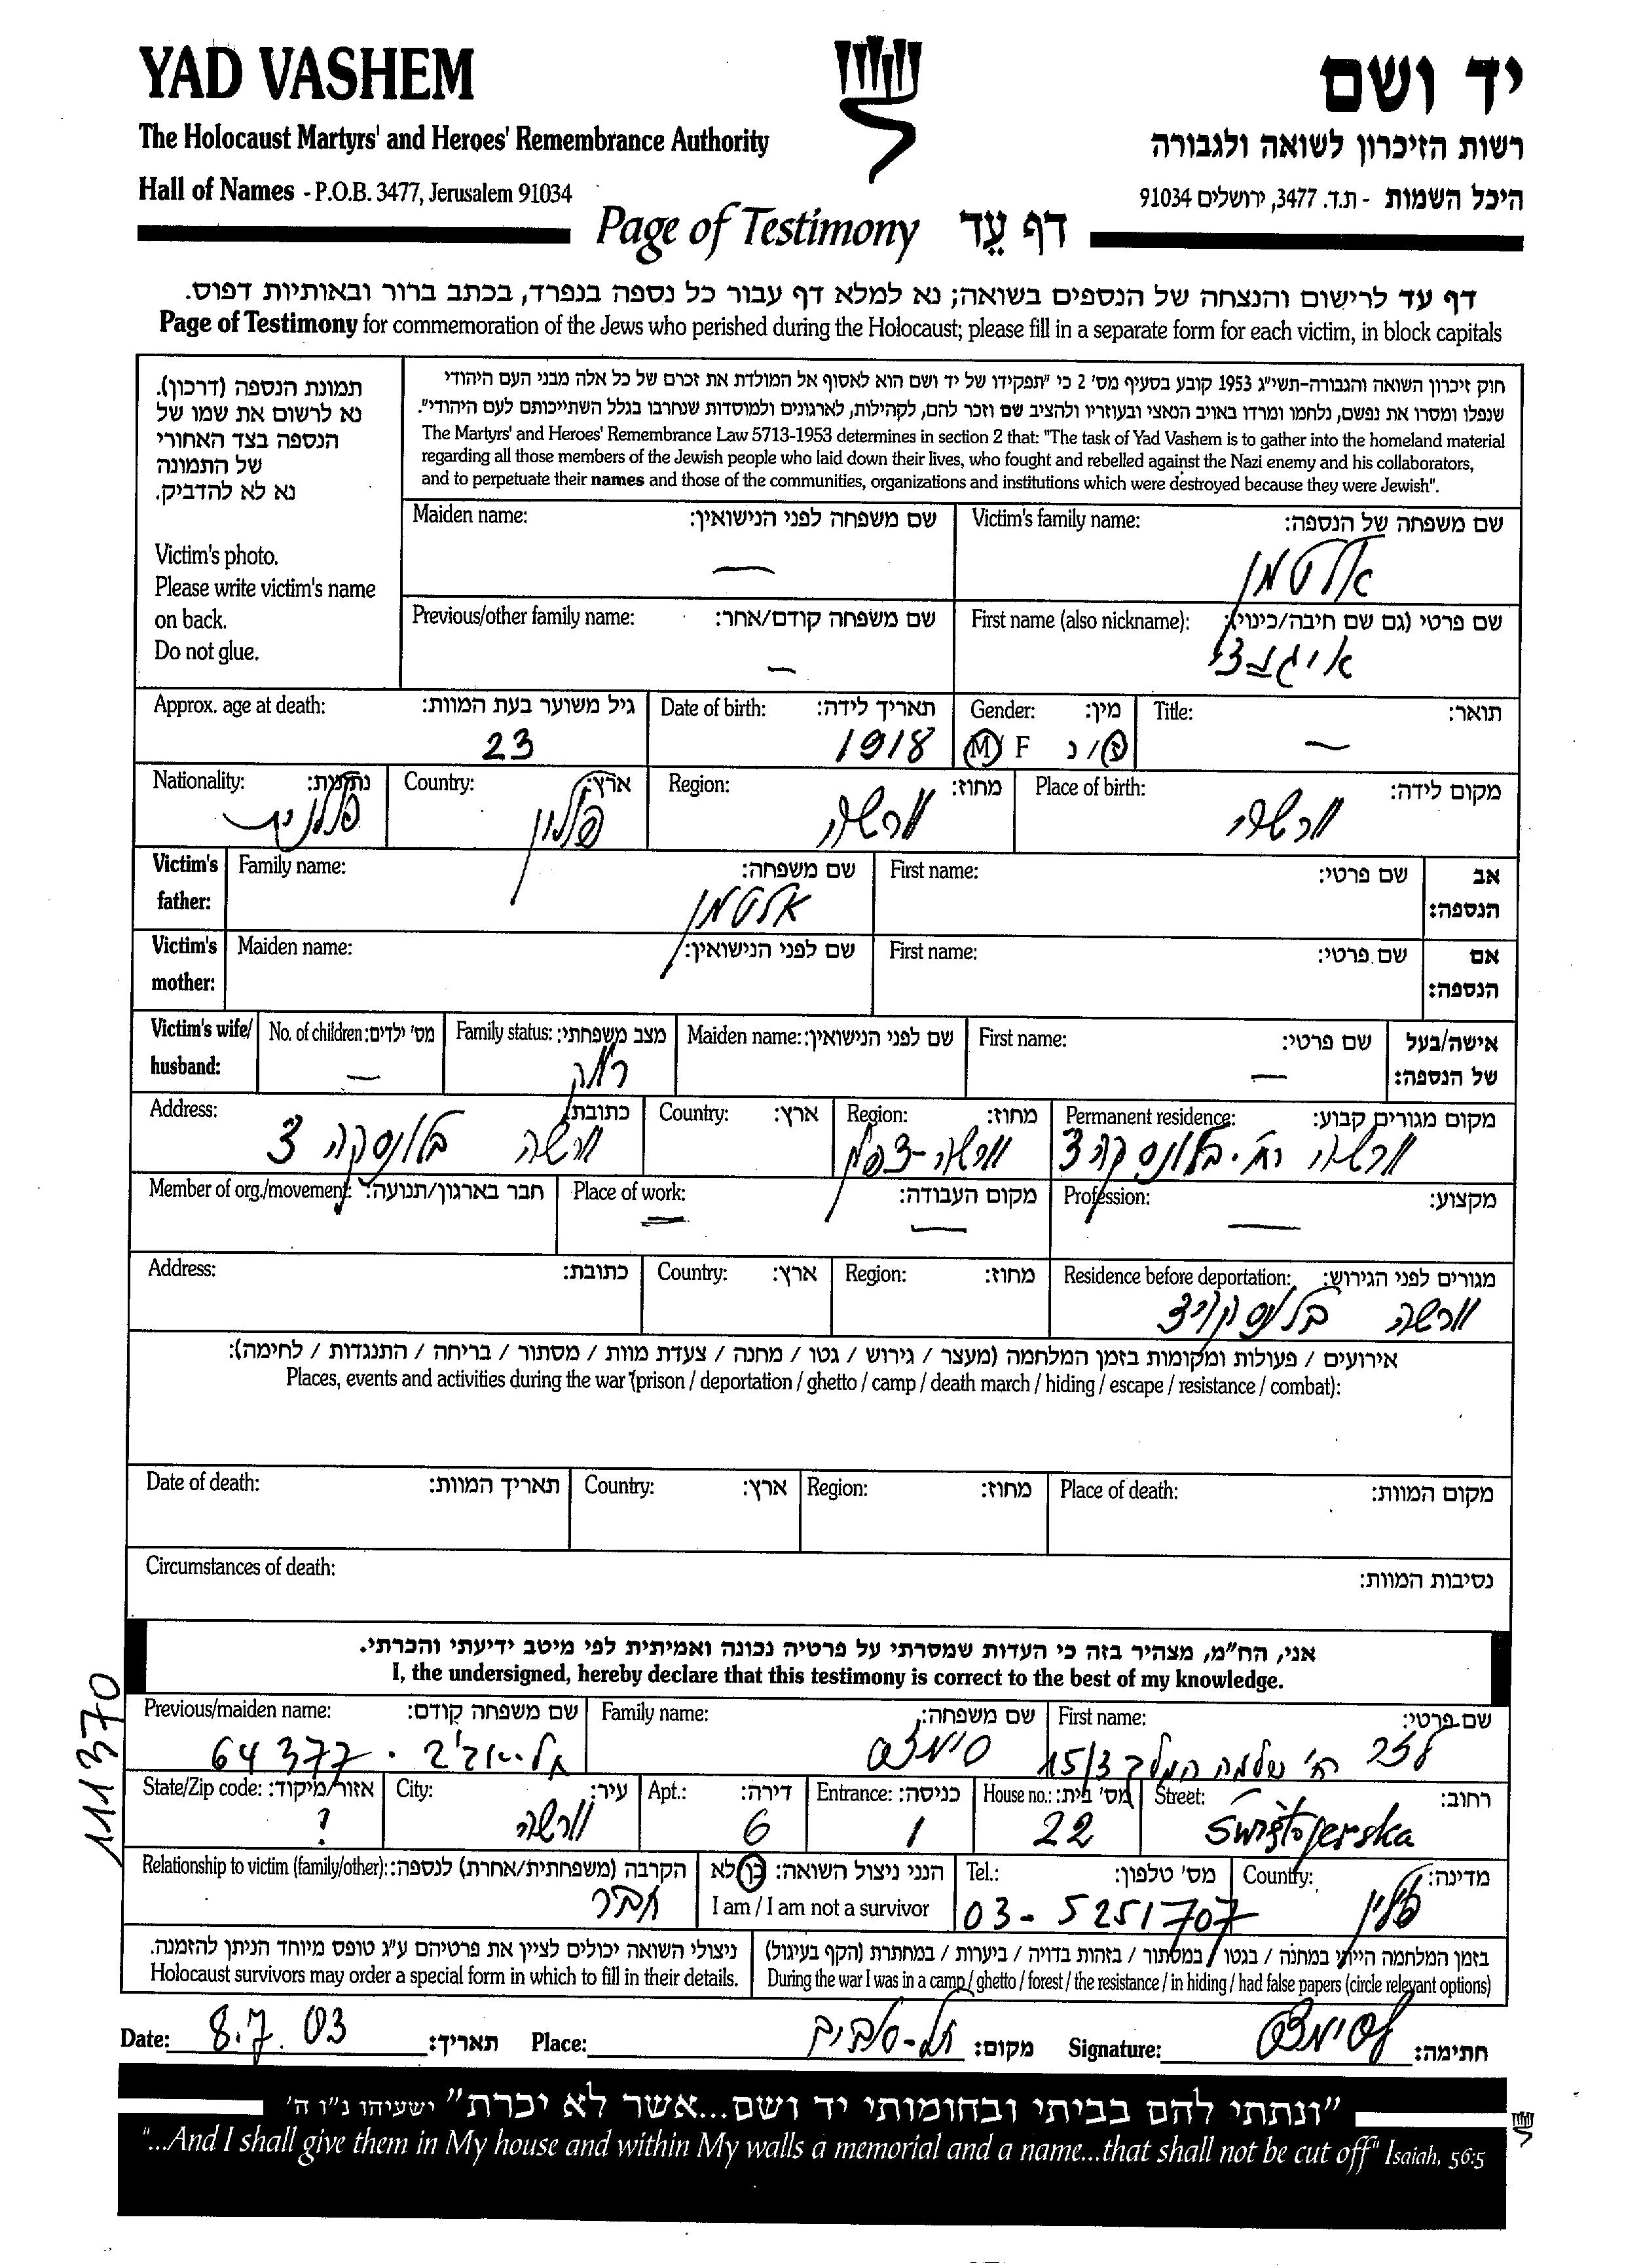 YAD VASHEM
יד ושם
The Holocaust Martyrs' and Heroes' Remembrance Authority
רשות הזיכרון לשואה ולגבורה
Hall of Names - P.O.B. 3477, Jerusalem 91034
היכל השמות - ת.ד. 3477, ירושלים 91034
Page of Testimony דף עֵד
דף עד לרישום והנצחה של הנספים בשואה; נא למלא דף עבור כל נספה בנפרד, בכתב ברור ובאותיות דפוס.
Page of Testimony for commemoration of the Jews who perished during the Holocaust; please fill in a separate form for each victim, in block capitals
תמונת הנספה (דרכון).
נא לרשום את שמו של
הנספה בצד האחורי
של התמונה
נא לא להדביק.
Victim's photo.
Please write victim's name
on back.
Do not glue.
חוק זיכרון השואה והגבורה-תשי"ג 1953 קובע בסעיף מס' 2 כי "תפקידו של יד ושם הוא לאסוף אל המולדת את זכרם של כל אלה מבני העם היהודי
שנפלו ומסרו את נפשם, נלחמו ומרדו באויב הנאצי ובעוזריו ולהציב שם וזכר להם, לקהילות, לארגונים ולמוסדות שנחרבו בגלל השתייכותם לעם היהודי".
The Martyrs' and Heroes' Remembrance Law 5713-1953 determines in section 2 that: "The task of Yad Vashem is to gather into the homeland material
regarding all those members of the Jewish people who laid down their lives, who fought and rebelled against the Nazi enemy and his collaborators,
and to perpetuate their names and those of the communities, organizations and institutions which were destroyed because they were Jewish".
Maiden name: שם משפחה לפני הנישואין: Victim's family name: שם משפחה של הנספה:
— אלטמן
Previous/other family name: שם משפחה קודם/אחר: First name (also nickname): שם פרטי (גם שם חיבה/כינוי):
— איגנצי
Approx. age at death: גיל משוער בעת המוות: Date of birth: תאריך לידה: Gender: מין: Title: תואר:
23 1918 M/ F ז/ נ —
Nationality: נתינות: Country: ארץ: Region: מחוז: Place of birth: מקום לידה:
פולנית פולין ורשה ורשה
Victim's father: Family name: שם משפחה: First name: שם פרטי: אב הנספה:
אלטמן
Victim's mother: Maiden name: שם לפני הנישואין: First name: שם פרטי: אם הנספה:
Victim's wife/ husband: No. of children: מס' ילדים: Family status: מצב משפחתי: Maiden name: שם לפני הנישואין: First name: שם פרטי: אישה/בעל של הנספה:
— רווק —
Address: כתובת: Country: ארץ: Region: מחוז: Permanent residence: מקום מגורים קבוע:
ורשה בלונסקה 3 ורשה-צפון ורשה רח' בלונסקה 3
Member of org./movement: חבר בארגון/תנועה: Place of work: מקום העבודה: Profession: מקצוע:
— — —
Address: כתובת: Country: ארץ: Region: מחוז: Residence before deportation: מגורים לפני הגירוש:
ורשה בלונסקה 3
אירועים / פעולות ומקומות בזמן המלחמה (מעצר / גירוש / גטו / מחנה / צעדת מוות / מסתור / בריחה / התנגדות / לחימה):
Places, events and activities during the war (prison / deportation / ghetto / camp / death march / hiding / escape / resistance / combat):
Date of death: תאריך המוות: Country: ארץ: Region: מחוז: Place of death: מקום המוות:
Circumstances of death: נסיבות המוות:
אני, הח"מ, מצהיר בזה כי העדות שמסרתי על פרטיה נכונה ואמיתית לפי מיטב ידיעתי והכרתי.
I, the undersigned, hereby declare that this testimony is correct to the best of my knowledge.
111370
Previous/maiden name: שם משפחה קודם: Family name: שם משפחה: First name: שם פרטי:
רח' שלמה המלך 15/3 תל-אביב 64377
State/Zip code: אזור/מיקוד: City: עיר: Apt.: דירה: Entrance: כניסה: House no.: מס' בית: Street: רחוב:
? ורשה 6 1 22 Świętojerska
Relationship to victim (family/other): הקרבה (משפחתית/אחרת) לנספה: הנני ניצול השואה: כן/לא Tel.: מס' טלפון: Country: מדינה:
חבר I am / I am not a survivor 03-5251707 פולין
ניצולי השואה יכולים לציין את פרטיהם ע"ג טופס מיוחד הניתן להזמנה.
Holocaust survivors may order a special form in which to fill in their details.
בזמן המלחמה הייתי במחנה / בגטו / במסתור / בזהות בדויה / ביערות / במחתרת (הקף בעיגול)
During the war I was in a camp / ghetto / forest / the resistance / in hiding / had false papers (circle relevant options)
Date: 8.7.03 תאריך: Place: תל-אביב מקום: Signature: חתימה:
"ונתתי להם בביתי ובחומותי יד ושם...אשר לא יכרת" ישעיהו נ"ו ה'
"...And I shall give them in My house and within My walls a memorial and a name...that shall not be cut off" Isaiah, 56:5